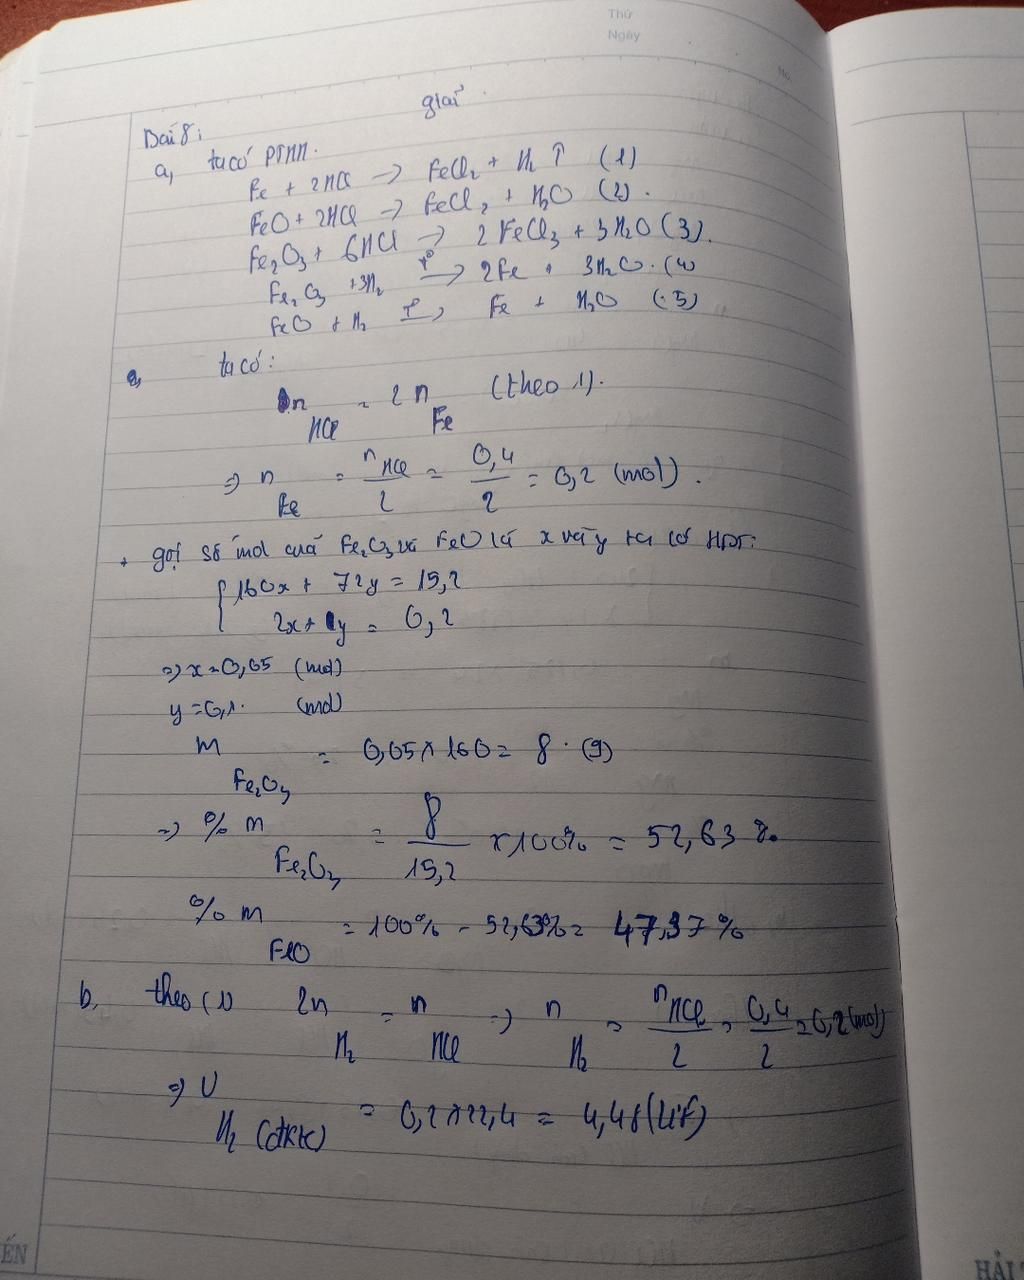 Thứ
Ngày
No.
giải
Bài 8:
a, ta có PTHH.
Fe + 2HCl → FeCl₂ + H₂ ↑ (1)
FeO + 2HCl → FeCl₂ + H₂O (2).
Fe₂O₃ + 6HCl → 2FeCl₃ + 3H₂O (3).
Fe₂O₃ + 3H₂ →(t°) 2Fe + 3H₂O. (4)
FeO + H₂ →(t°) Fe + H₂O (5)
a, ta có:
n HCl = 2 n Fe (theo 1).
⇒ n Fe = n HCl / 2 = 0,4 / 2 = 0,2 (mol).
+ gọi số mol của Fe₂O₃ và FeO là x và y ta có HPT:
{ 160x + 72y = 15,2
2x + y = 0,2
⇒ x = 0,05 (mol)
y = 0,1. (mol)
m Fe₂O₃ = 0,05 x 160 = 8. (g)
⇒ % m Fe₂O₃ = 8 / 15,2 x 100% = 52,63 %.
% m FeO = 100% - 52,63% = 47,37 %
b, theo (1) 2n H₂ = n HCl ⇒ n H₂ = n HCl / 2 = 0,4 / 2 = 0,2 (mol)
⇒ V H₂ (đktc) = 0,2 x 22,4 = 4,48 (lít)
ẾN
HẢI